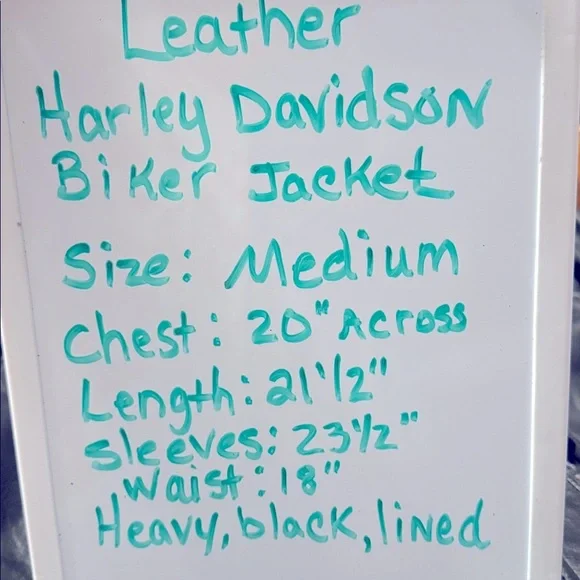 Leather
Harley Davidson
Biker Jacket
Size: Medium
Chest: 20" Across
Length: 21 1/2"
Sleeves: 23 1/2"
Waist: 18"
Heavy, black, lined